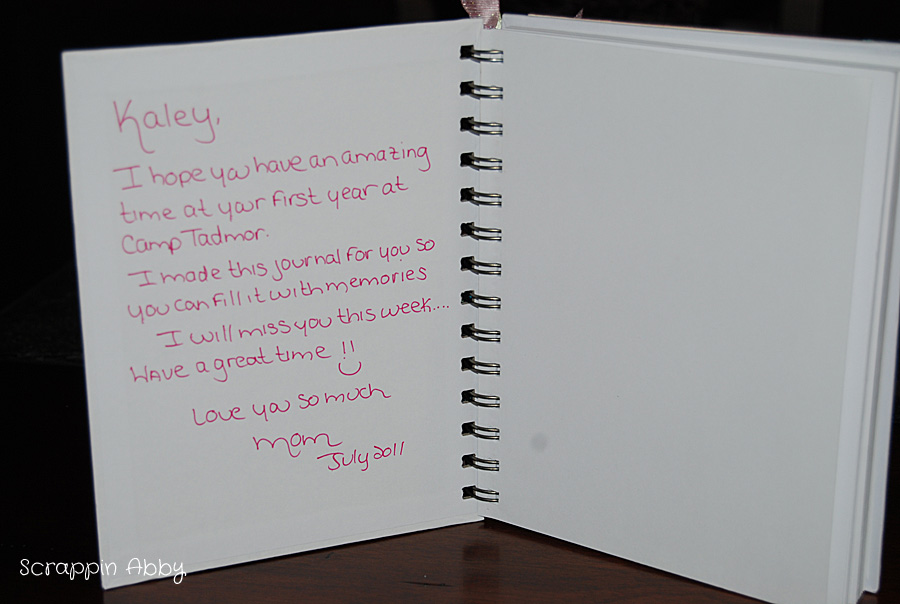 Kaley,
I hope you have an amazing
time at your first year at
Camp Tadmor.
I made this journal for you so
you can fill it with memories
I will miss you this week....
Have a great time !!
Love you so much
mom
July 2011
Scrappin Abby